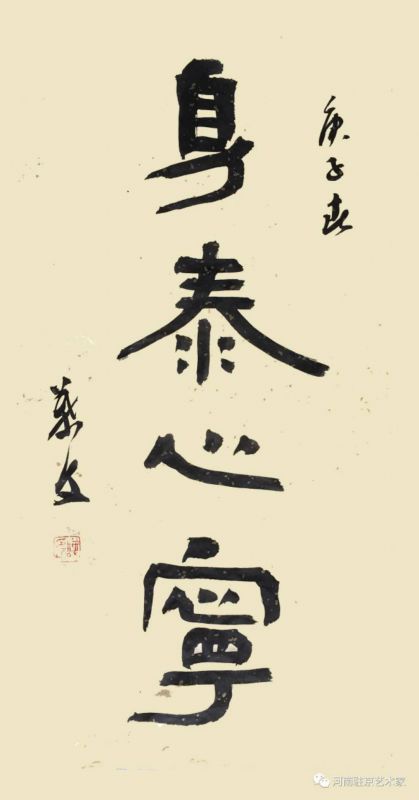 庚子春
身泰心寧
河南驻京艺术家